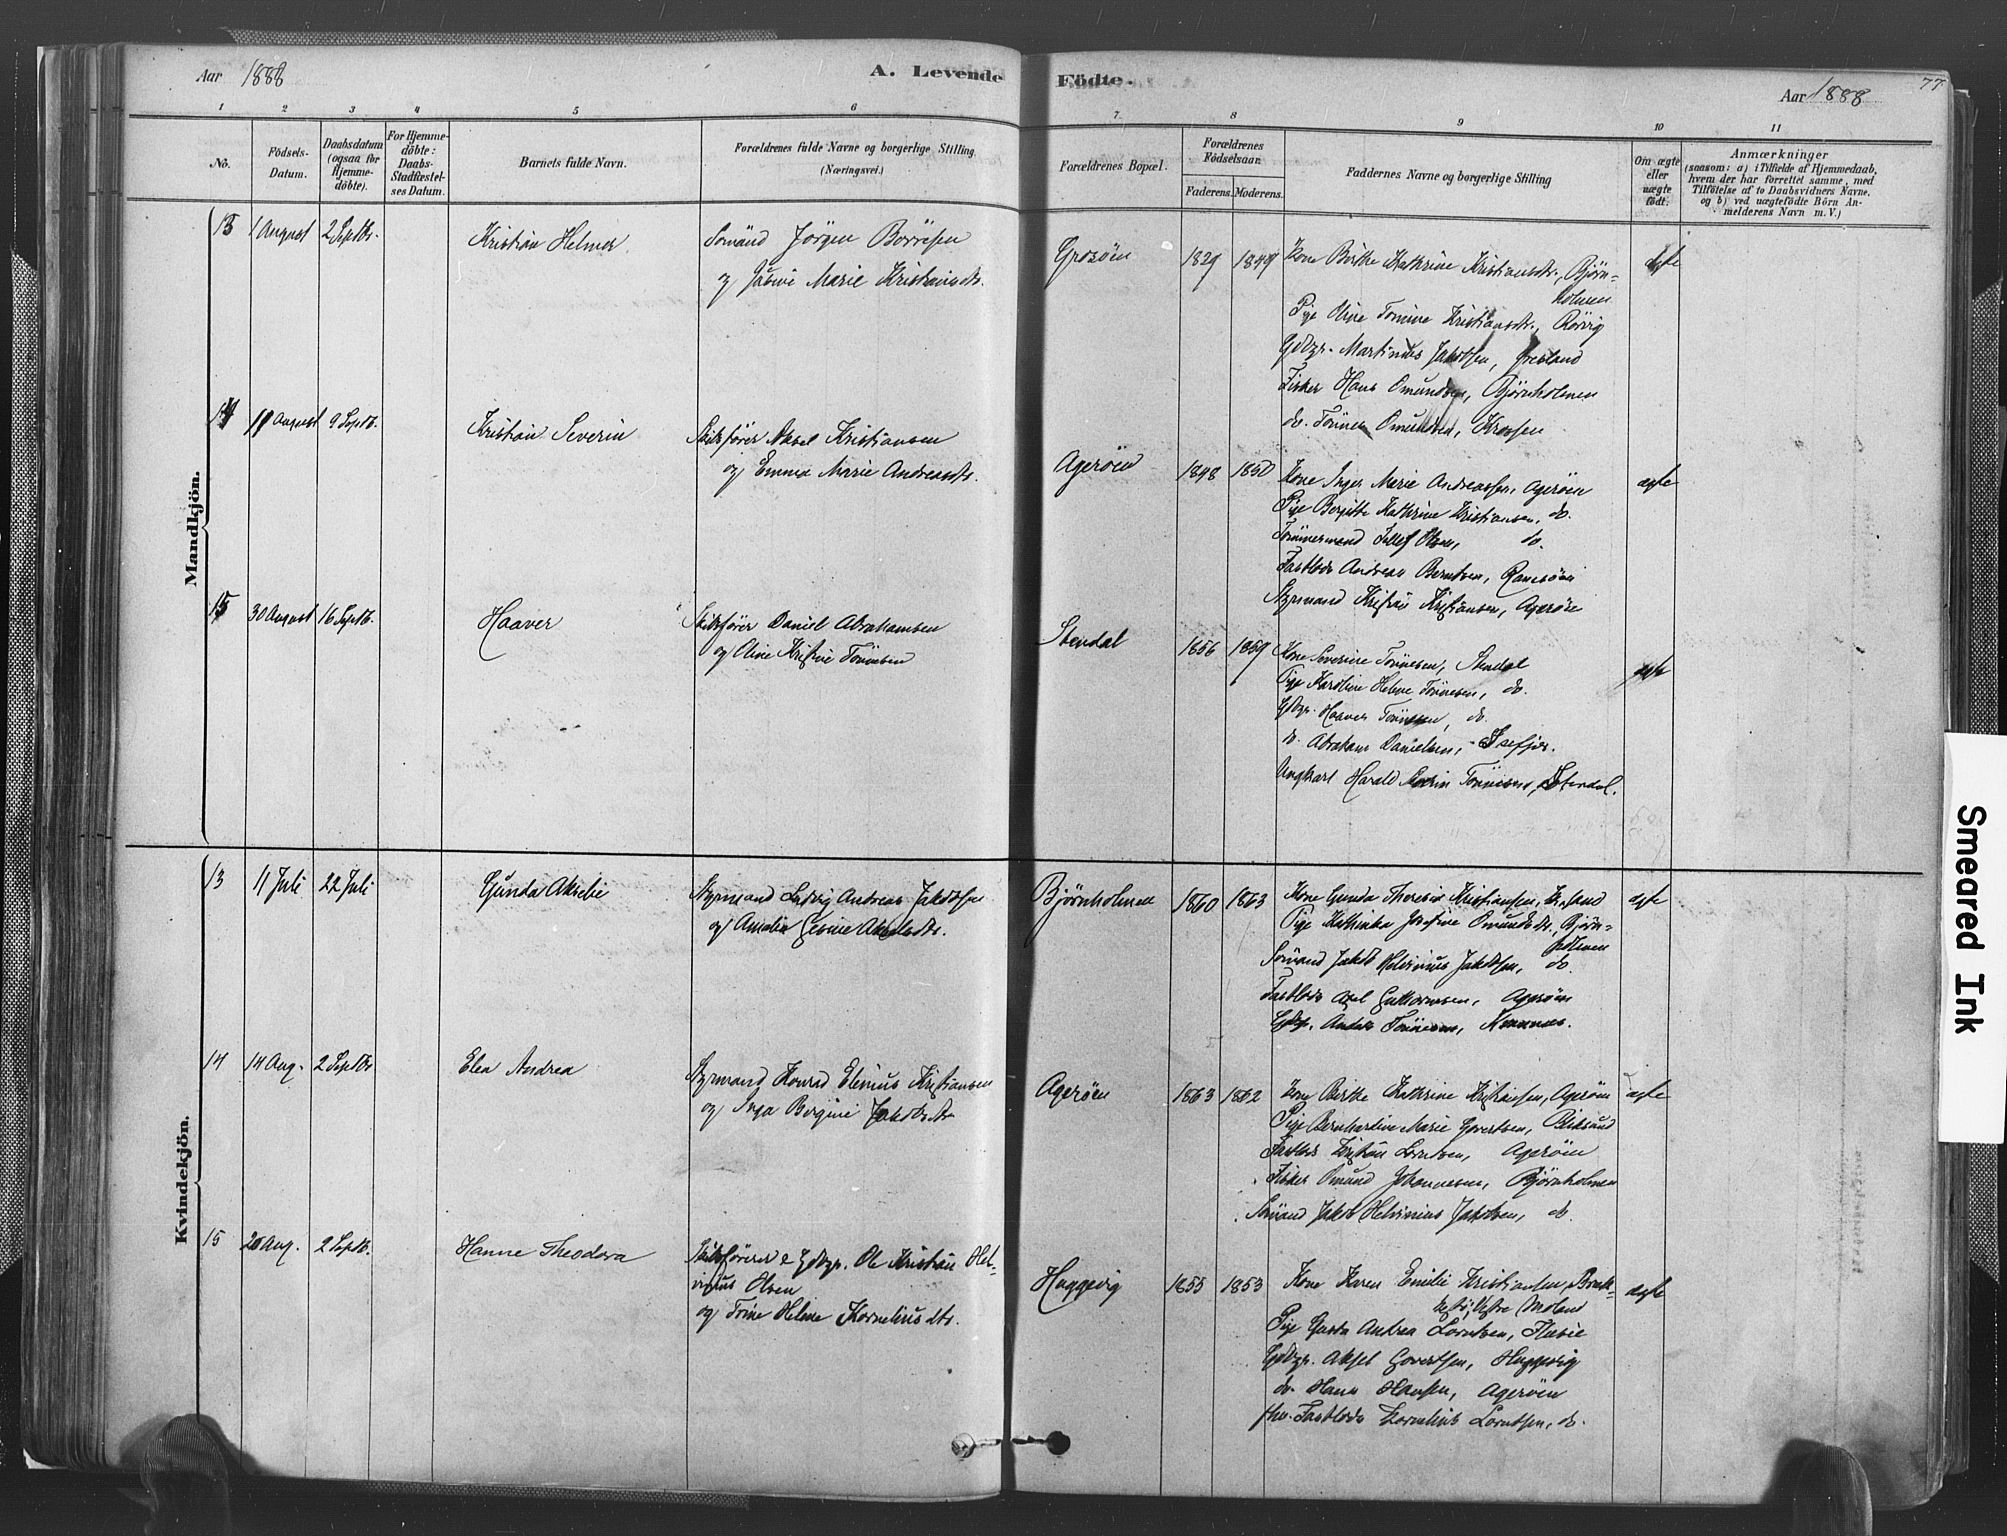 Aar 1888
A. Levende
Födte.
Aar 1888
77
1 2 3 4 5 6 7. 8 9 10 11
No.
Födsels-
Datum.
Daabsdatum
(ogsaa for
Hjemme-
döbte).
For Hjemme-
döbte:
Daabs-
Stadfæstel-
ses Datum.
Barnets fulde Navn.
Forældrenes fulde Navne og borgerlige Stilling
(Næringsvei.)
Forældrenes Bopæl.
Forældrenes
Födselsaar.
Faderens. Moderens.
Faddernes Navne og borgerlige Stilling
Om ægte
eller
uægte
födt.
Anmærkninger
(saasom: a) i Tilfælde af Hjemmedaab,
hvem der har forrettet samme, med
Tilföielse af to Daabsvidners Navne.
og b) ved uægtefödte Börn An-
melderens Navn m. V.)
Mandkjön.
13 1 August 2 Septbr. Kristian Helmer Sømand Jörgen Börresen
og Marie Kristiansdtr.
1829 1849 Kone Birthe Kathrine Kristiansdtr., Bjørn-
holmen
ægte
Pige Oline Tomine Kristiansdtr.,
Gdbgr. Martinius Jakobsen,
Fisker Hans Omundsen, Bjørnholmen
do. Tönnes Omundsen,
14 11 August 9 Septb. Kristian Severin Skibsfører Aksel Kristiansen
og Emma Marie Andreasdtr.
Agerøen 1848 1850 Kone Inger Marie Andreassen, Agerøen
ægte
Pige Bergitte Kathrine Kristiansen, do.
Tømmermand Olsen, do.
Fastlods Andreas Berntsen, Ramsøen
Styrmand Kristian Kristiansen, Agerøen
15 30 August 16 Septb. Haaver Skibsfører Daniel Abrahamsen
og Oline Kristine Tönnesen
Stendal 1856 1859 Kone Severine Tönnesen, Stendal
ægte
Pige Karoline Helene Tönnesen, do.
Gdbgr. Haaver Tönnesen, do.
do. Abraham Danielsen, Isefjær.
Ungkarl Harald Tönnesen, Stendal.
Kvindekjön.
13 11 Juli 22 Juli Gunda Akselie Styrmand Ludvig Andreas Jakobsen
og Amalie Gesine Akselsdtr.
Bjørnholmen 1860 1863 Kone Gunda Theresie Kristiansen,
ægte
Pige Kathinka Josefine Omundsdtr., Bjørn-
holmen
Sømand Jakob Helvinius Jakobsen, do.
Fastlods Axel Guttormsen, Agerøen
Gdbgr. Anders Tönnesen,
14 14 Aug. 2 Septbr Elea Andrea Styrmand Konrad Elenius Kristiansen
og Inga Bergine Jakobsdtr
Agerøen 1863 1862 Kone Birthe Kathrine Kristiansen, Agerøen
ægte
Pige Bernhardine Marie Govertsen,
Fastlods Kristian Lorntsen, Agerøen
Fisker Omund Johannesen, Bjørnholmen
Sømand Jakob Helvinius Jakobsen, do.
15 20 Aug. 2 Septb. Hanne Theodora Skibsfører & Gdbgr. Ole Kristian Hel-
vinius Olsen
og Trine Helene Korneliusdtr.
Huggevig 1855 1853 Kone Karen Emilie Kristiansen, Brække-
stø, Vestre Moland
ægte
Pige Gusta Andrea Lorntsen,
Gdbgr. Aksel Govertsen, Huggevig
do. Hans Hansen, Agerøen
fhv. Fastlods Kornelius Lorntsen, do.
Smeared Ink